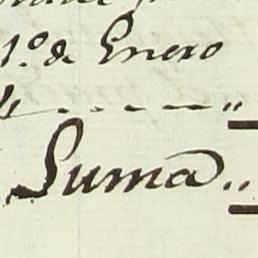 1.º de Enero
Suma